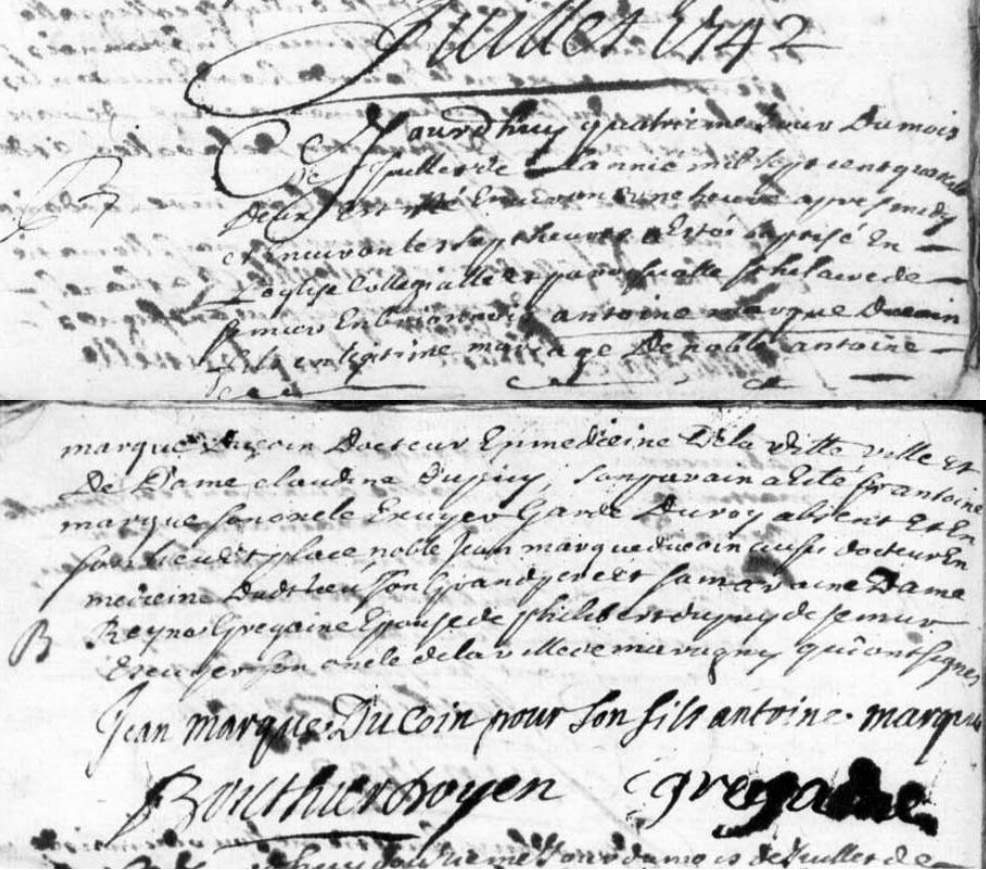 Juillet 1742
B
Ce Jourdhuy quatrieme Jour Du mois
de Juillet de Lannie mil sept cent quarante
deux Est né Environ une heure apres midy
et Environ les sept heures a Estés baptisé En
Leglise Collegialle et parroissialle St hilaire de
semur En brionnois antoine marque Ducoin
fils en legitime mariage De noble antoine
marque Ducoin Docteur En medicine De la ditte ville Et
De Dame claudine Dupuy, son parrain a Eté Sr antoine
marque son oncle Ecuyer Garde Du roy absent Et En
son lieu Et place noble Jean marque ducoin aussi docteur En
medicine Dudt lieu son Grandpere Et sa marraine Dame
Reyne Gregaine Epouse de philibert dupuy de semur
Ecuyer son oncle de la ville de marcigny qui ont signes
B
Jean marque Du Coin pour son fils antoine marque
Bouthier doyen gregaine
huy douzieme Jour du mois de Juillet de